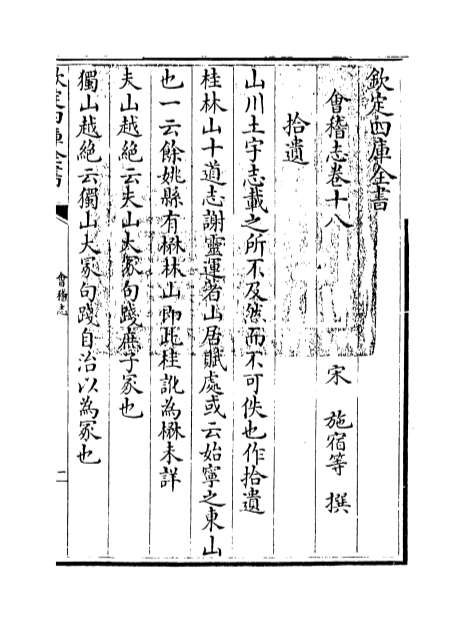 欽定四庫全書
會稽志卷十八
宋 施宿等 撰
拾遺
山川土宇志載之所不及然而不可佚也作拾遺
桂林山十道志謝靈運著山居賦處或云始寧之東山
也一云餘姚縣有楙林山即此桂訛為楙未詳
夫山越絶云夫山大冢句踐庶子冢也
獨山越絶云獨山大冢句踐自治以為冢也
欽定四庫全書
會稽志